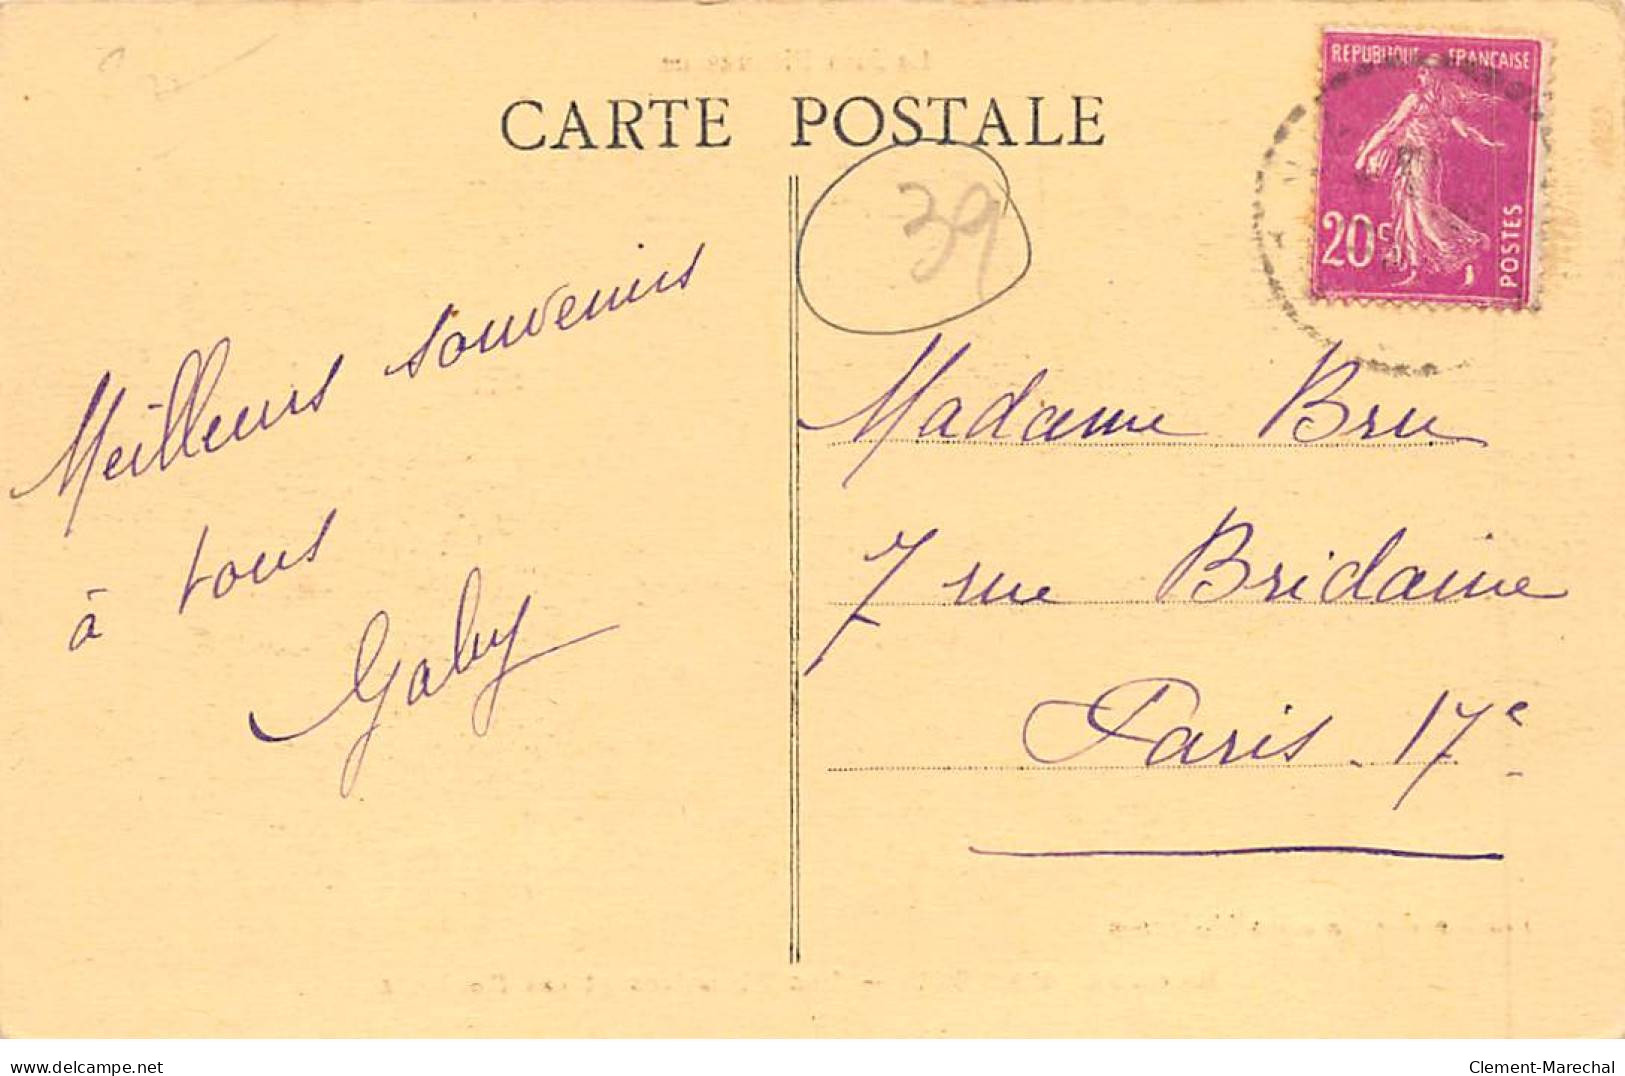 CARTE POSTALE
REPUBLIQUE FRANCAISE
20c
POSTES
39
Meilleurs souvenirs
à tous
Gaby
Madame Bru
7 rue Bridaine
Paris. 17e
www.delcampe.net
Clement-Marechal